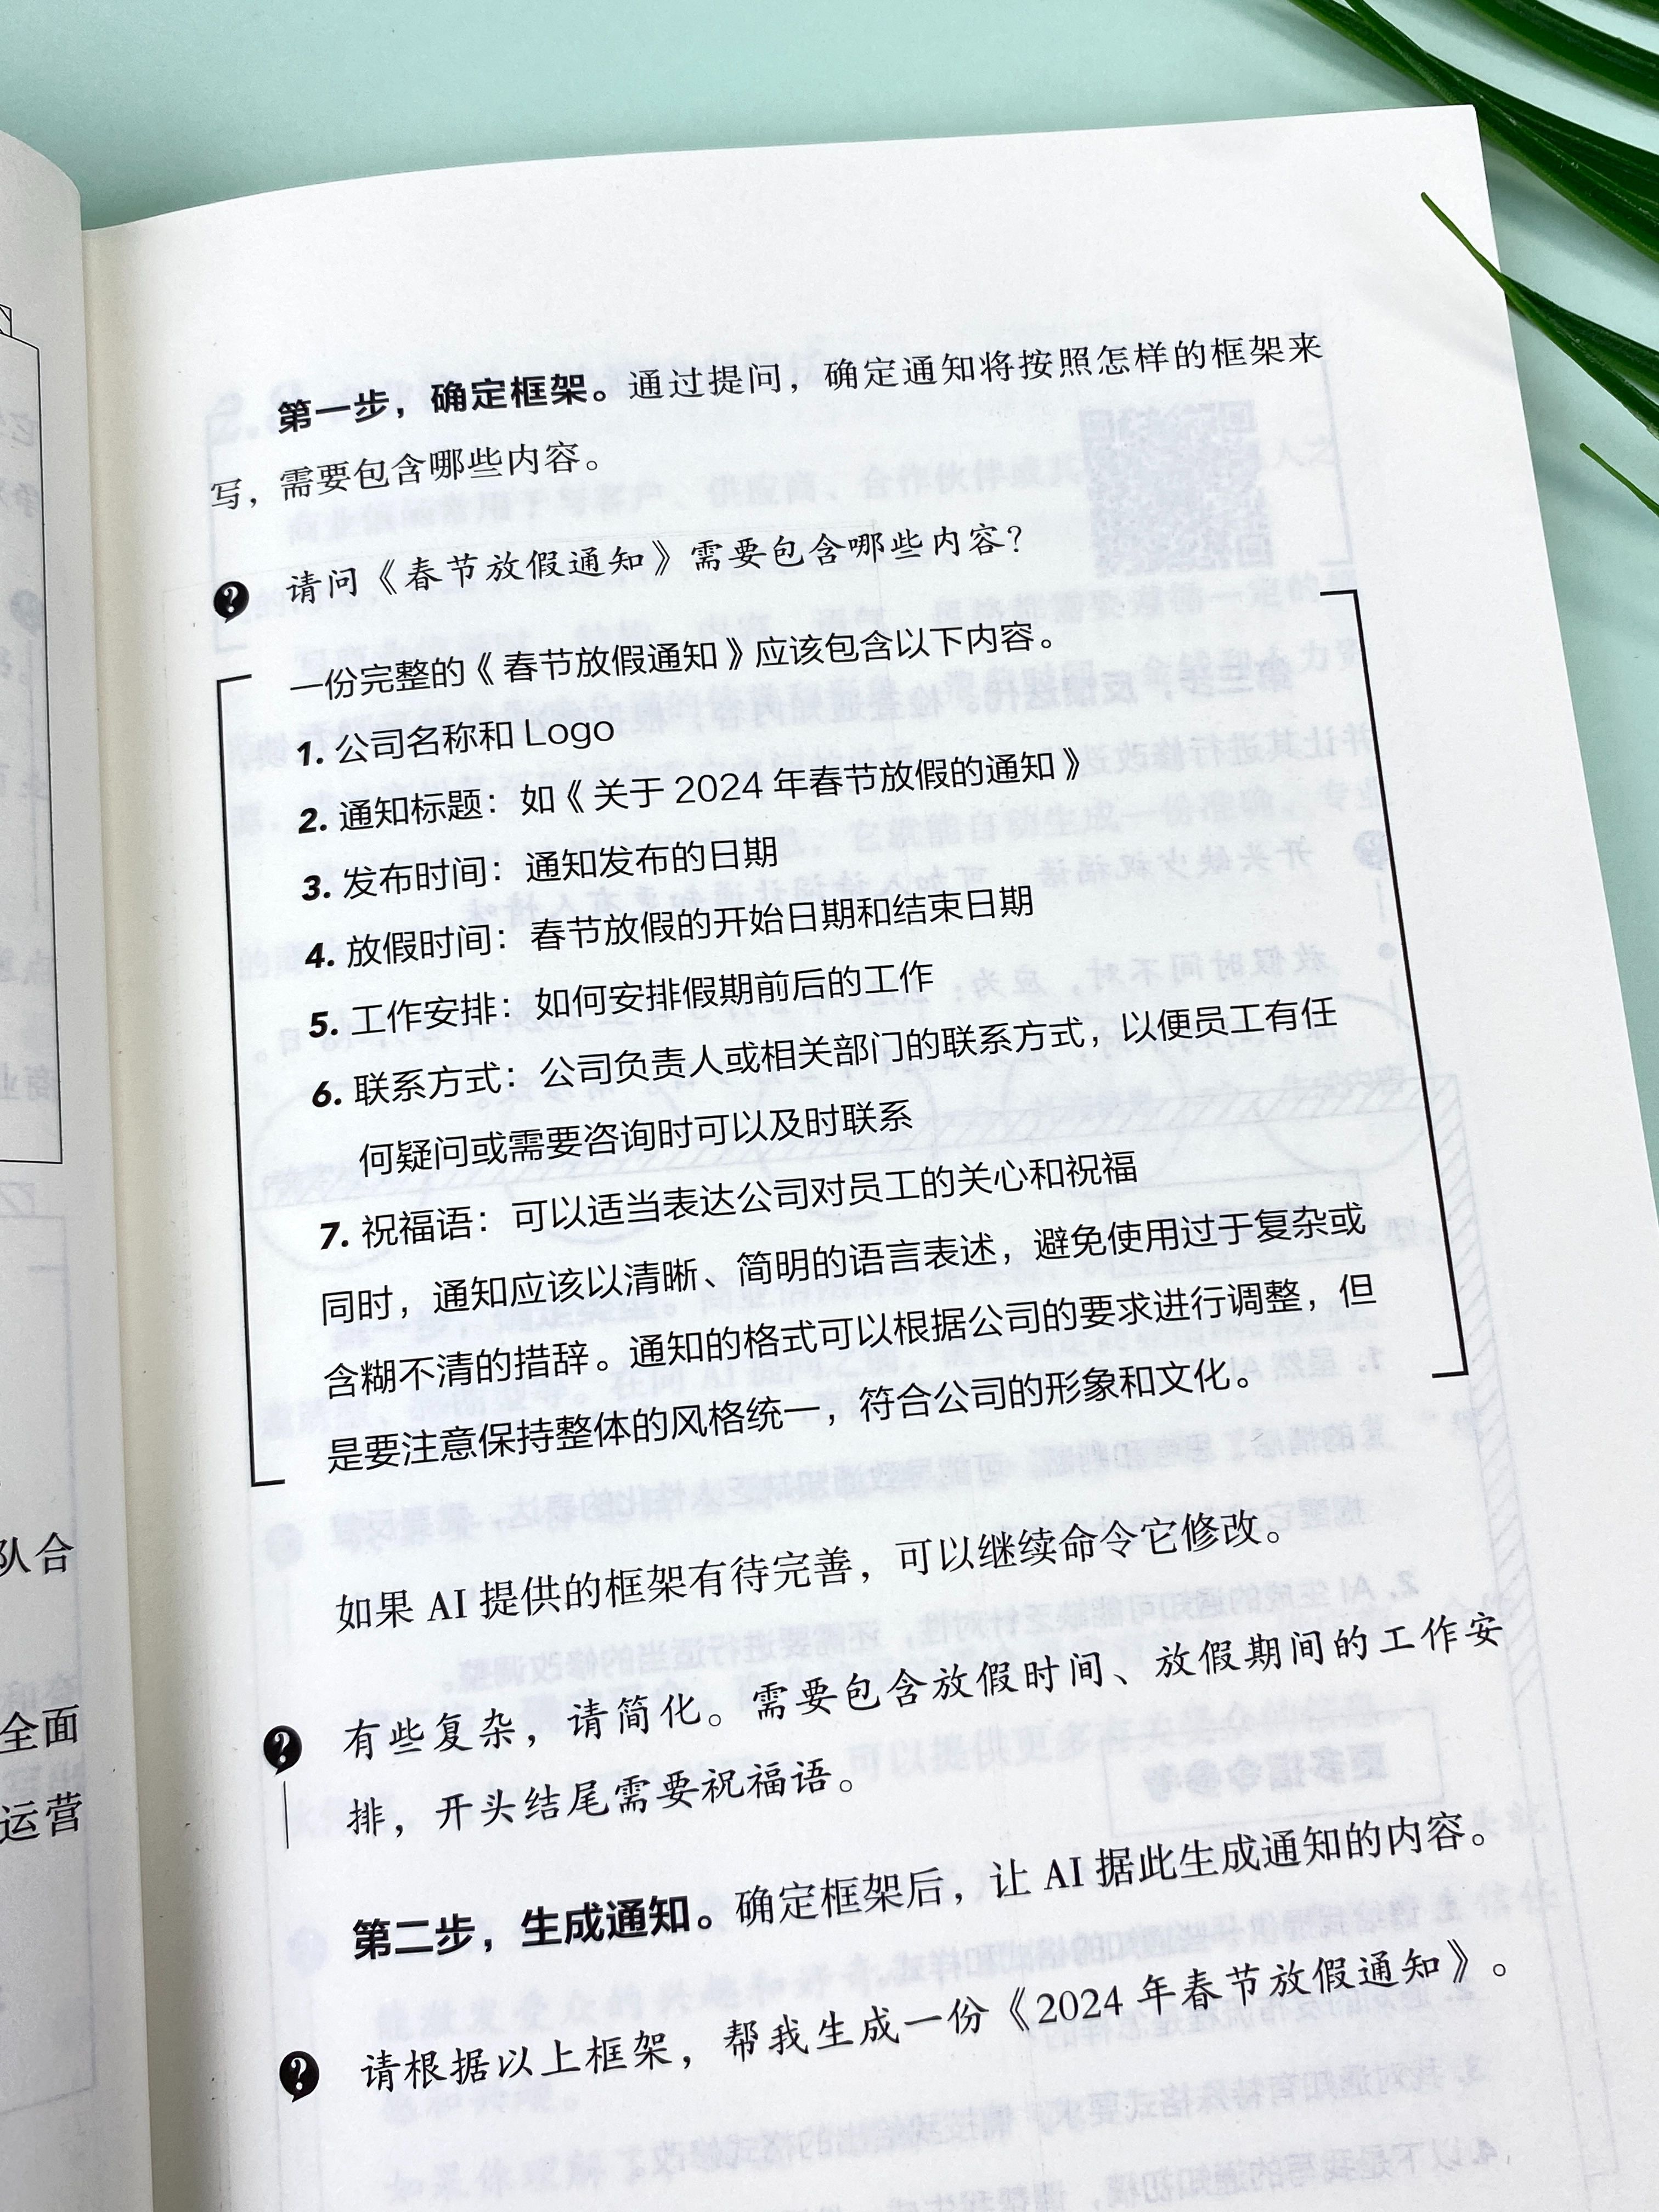 队合
全面
运营
第一步，确定框架。通过提问，确定通知将按照怎样的框架来
写，需要包含哪些内容。
请问《春节放假通知》需要包含哪些内容？
一份完整的《春节放假通知》应该包含以下内容。
1. 公司名称和 Logo
2. 通知标题：如《关于 2024 年春节放假的通知》
3. 发布时间：通知发布的日期
4. 放假时间：春节放假的开始日期和结束日期
5. 工作安排：如何安排假期前后的工作
6. 联系方式：公司负责人或相关部门的联系方式，以便员工有任
何疑问或需要咨询时可以及时联系
7. 祝福语：可以适当表达公司对员工的关心和祝福
同时，通知应该以清晰、简明的语言表述，避免使用过于复杂或
含糊不清的措辞。通知的格式可以根据公司的要求进行调整，但
是要注意保持整体的风格统一，符合公司的形象和文化。
如果 AI 提供的框架有待完善，可以继续命令它修改。
有些复杂，请简化。需要包含放假时间、放假期间的工作安
排，开头结尾需要祝福语。
第二步，生成通知。确定框架后，让 AI 据此生成通知的内容。
请根据以上框架，帮我生成一份《2024 年春节放假通知》。